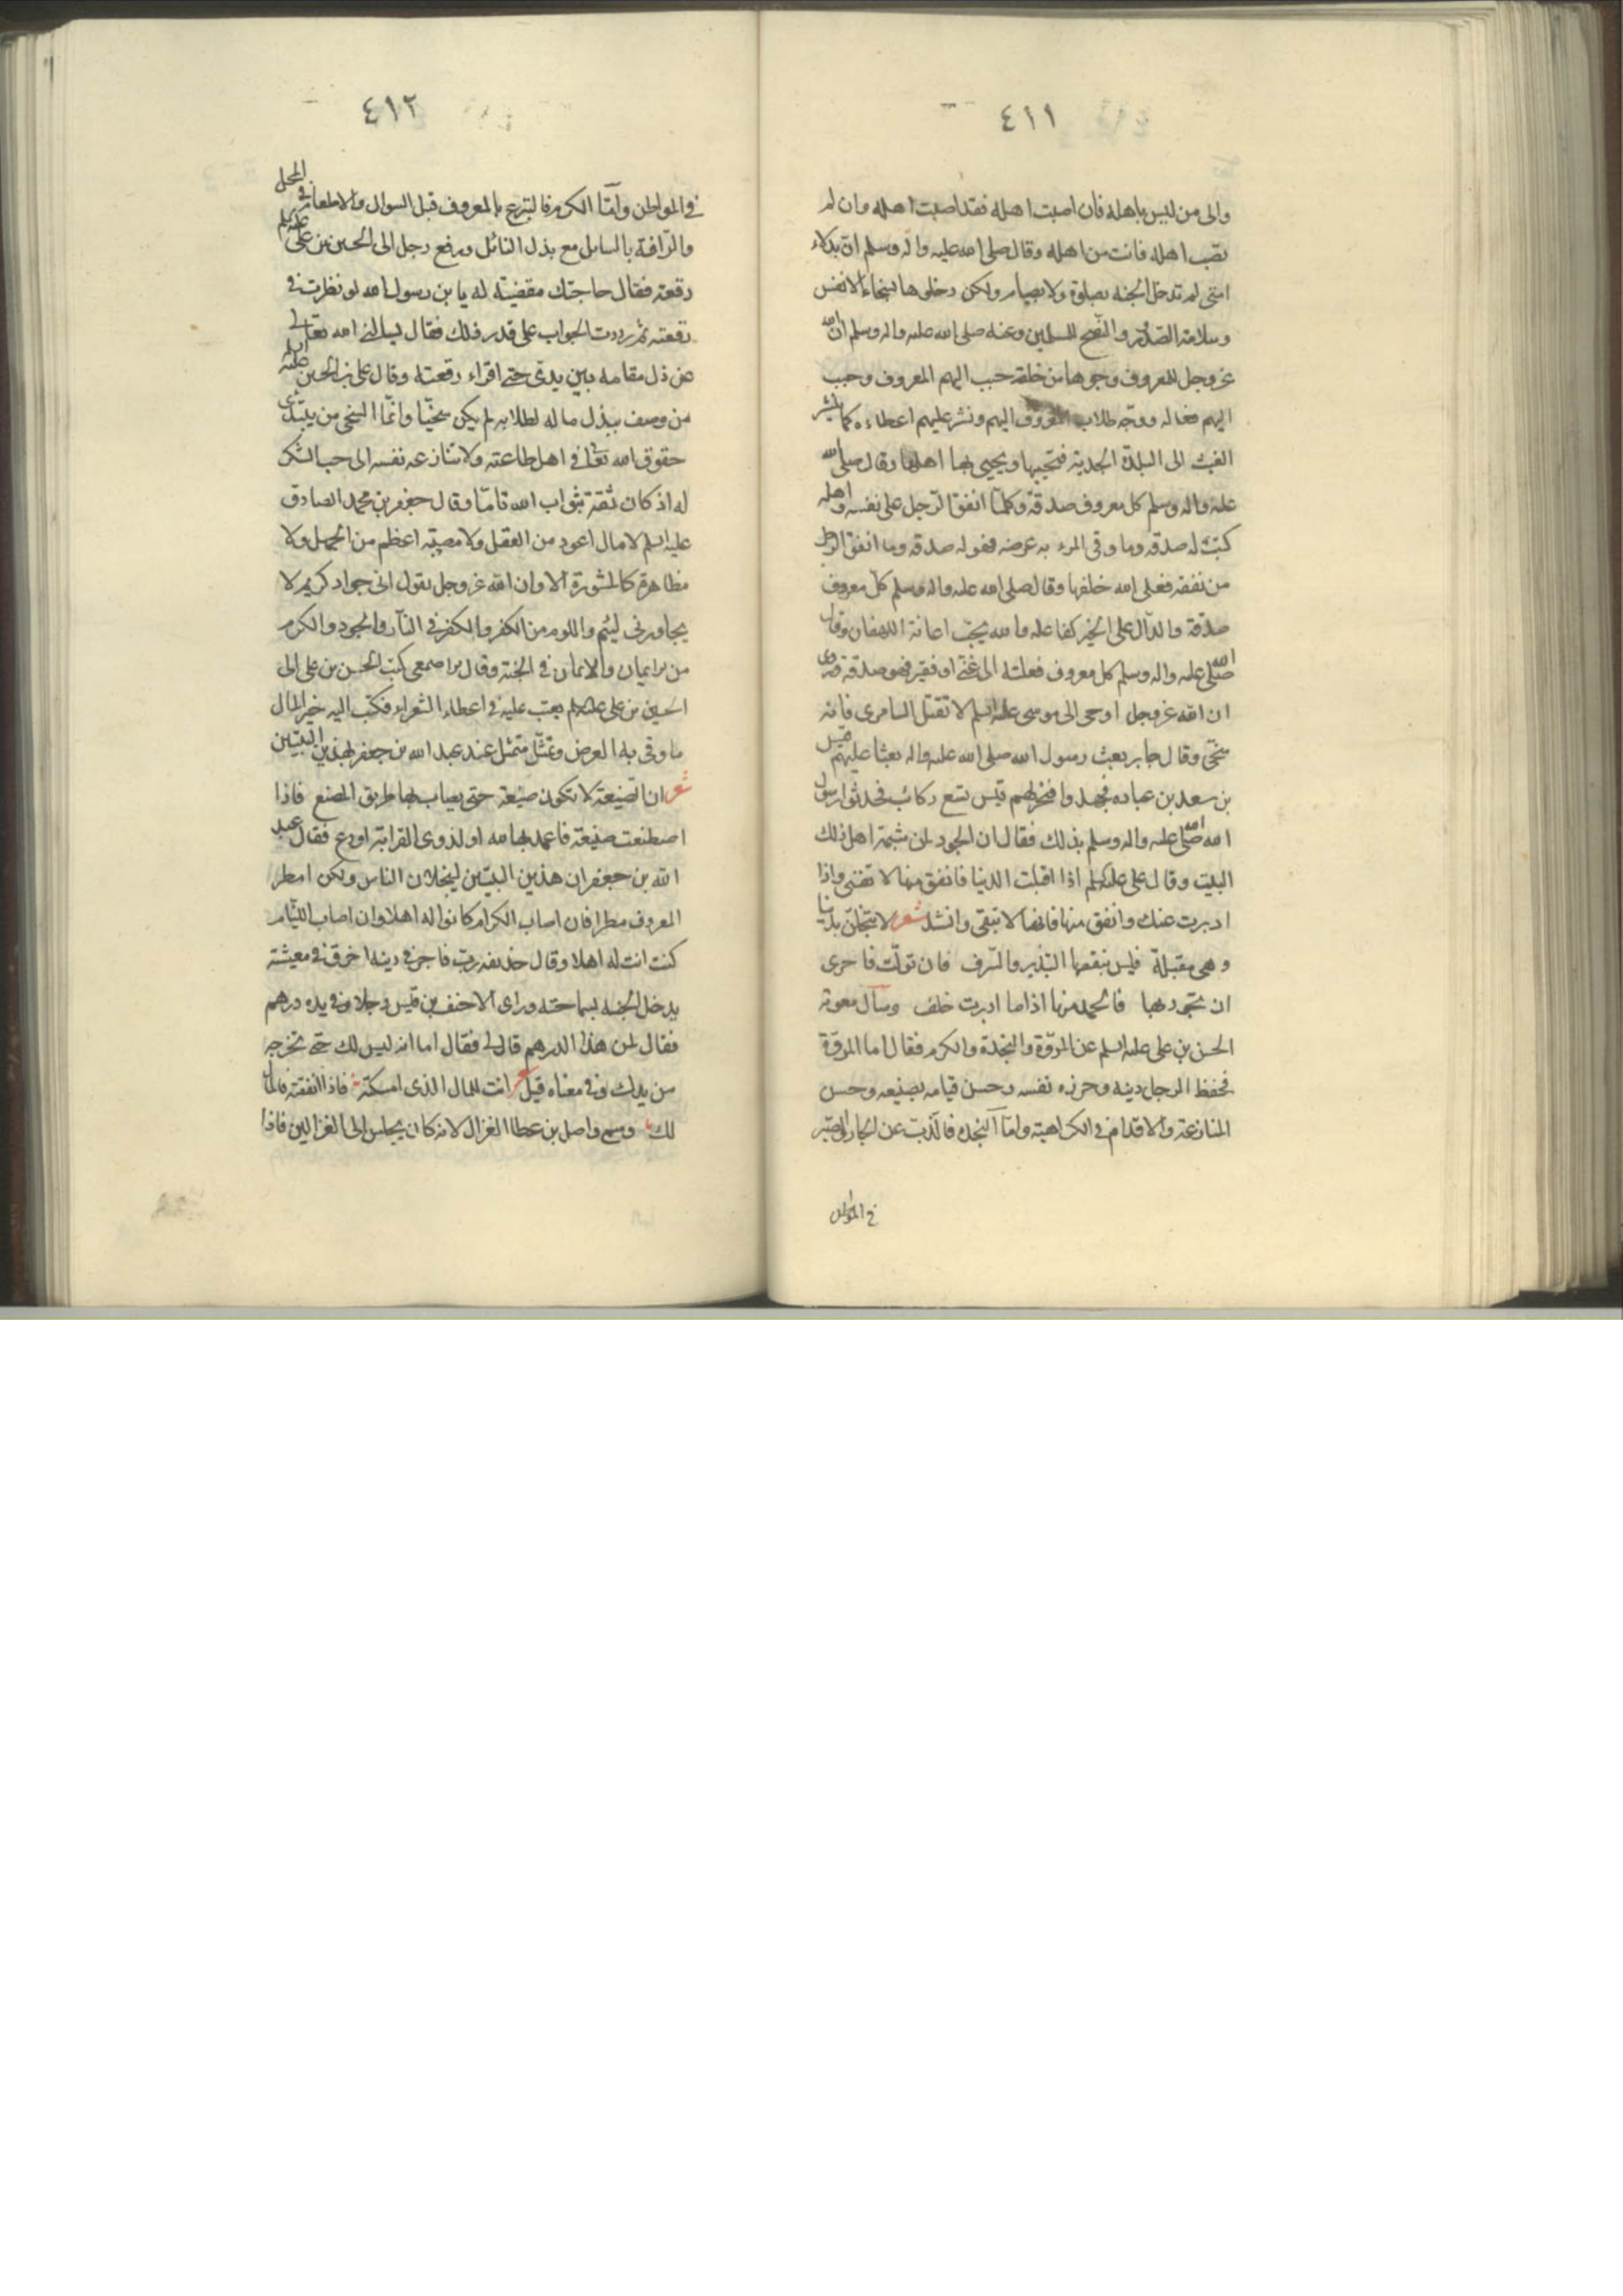 ٤١١
والى من ليس باهله فان اصبت اهله فقد اصبت اهله وان لم
تصب اهله فانت من اهله وقال صلى الله عليه واله وسلم ان بدلاء
امتى لم تدخل الجنه بصلوة ولا بصيام ولكن دخلوها بسخاء الانفس
وسلامة الصدور والنصح للمسلمين وعنه صلى الله عليه واله وسلم ان الله
عز وجل للمعروف وجوها من خلقه حبب اليهم المعروف وحبب
اليهم فعاله ووجه طلاب المعروف اليهم ونشر عليهم اعطاءه كما نشر
الغيث الى البلدة الجدبة فتحييها ويحيى بها اهلها وقال صلى الله
عليه واله وسلم كل معروف صدقة وكلما انفق الرجل على نفسه واهله
كتب له صدقه وما وقى المرء به عرضه فهو له صدقه وما انفق الرجل
من نفقه فعلى الله خلفها وقال صلى الله عليه واله وسلم كل معروف
صدقة والدال على الخير كفاعله والله يحب اعانة اللهفان وقال
صلى الله عليه واله وسلم كل معروف فعلته الى غنى او فقير فهو صدقة وروى
ان الله عز وجل اوحى الى موسى عليه السلم لا تقتل السامرى فانه
سخى وقال جابر بعث رسول الله صلى الله عليه واله بعثا عليهم قيس
بن سعد بن عباده فجهدوا فنحر لهم قيس تسع ركائب فحدثوا رسول
الله صلى الله عليه واله وسلم بذلك فقال ان الجود لمن شيمة اهل ذلك
البيت وقال على عليه السلم اذا اقبلت الدنيا فانفق منها لا تفنى واذا
ادبرت عنك وانفق منها فانها لا تبقى وانشد شعر لا تبخلن بدنيا
وهى مقبلة فليس ينقصها التبذير والسرف فان تولت فاحرى
ان تجود بها فالحمد منها اذا ما ادبرت خلف وسال معوية
الحسن بن على عليه السلم عن المروة والنجدة والكرم فقال اما المروة
فحفظ الرجل دينه وحرزه نفسه وحسن قيامه بصنيعه وحسن
المنازعة والاقدام فى الكراهية واما النجده فالذب عن الجار والصبر
فى المواطن
٤١٢
فى المواطن واما الكرم فالتبرع بالمعروف قبل السوال والاطعام فى المحل
والرافة بالسايل مع بذل النائل ورفع رجل الى الحسين بن على عليه السلم
رقعته فقال حاجتك مقضية له يا بن رسول الله لو نظرت فى
رقعته ثم رددت الجواب على قدر ذلك فقال يسالنى الله تعالى
عن ذل مقامه بين يدى حتى اقراء رقعته وقال على بن الحسين عليه السلم
من وصف ببذل ماله لطلابه لم يكن سخيا وانما السخى من يبتدى
حقوق الله تعالى فى اهل طاعته ولا تنازعه نفسه الى حب الشكر
له اذ كان ثقته بثواب الله تاما وقال جعفر بن محمد الصادق
عليه السلم لا مال اعود من العقل ولا مصيبة اعظم من الجهل ولا
مظاهرة كالمشورة الا وان الله عز وجل يقول انى جواد كريم لا
يجاورنى لئيم واللوم من الكفر والكفر فى النار والجود والكرم
من الايمان والايمان فى الجنة وقال الاصمعى كتب الحسن بن على الى
الحسين بن على عليه السلم يعتب عليه فى اعطاء الشعراء فكتب اليه خير المال
ما وقى به العرض وتمثل متمثل عند عبد الله بن جعفر لهذين البيتين
شعر ان الصنيعة لا تكون صنيعة حتى يصاب بها طريق المصنع فاذا
اصطنعت صنيعة فاعمد بها لله او لذوى القرابة او دع فقال عبد
الله بن جعفر ان هذين البيتين ليبخلان الناس ولكن امطر
المعروف مطرا فان اصاب الكرام كانوا له اهلا وان اصاب اللئام
كنت انت له اهلا وقال حذيفه رب فاجر فى دينه اخرق فى معيشته
يدخل الجنه بسماحته وراى الاحنف بن قيس رجلا وفى يده درهم
فقال لمن هذا الدرهم قال لى فقال اما انه ليس لك حتى تخرجه
من يدك وفى معناه قيل شعر انت للمال الذى امسكته فاذا انفقته فالمال
لك وسمى واصل بن عطا الغزال لانه كان يجلس الى الغزالين فاذا